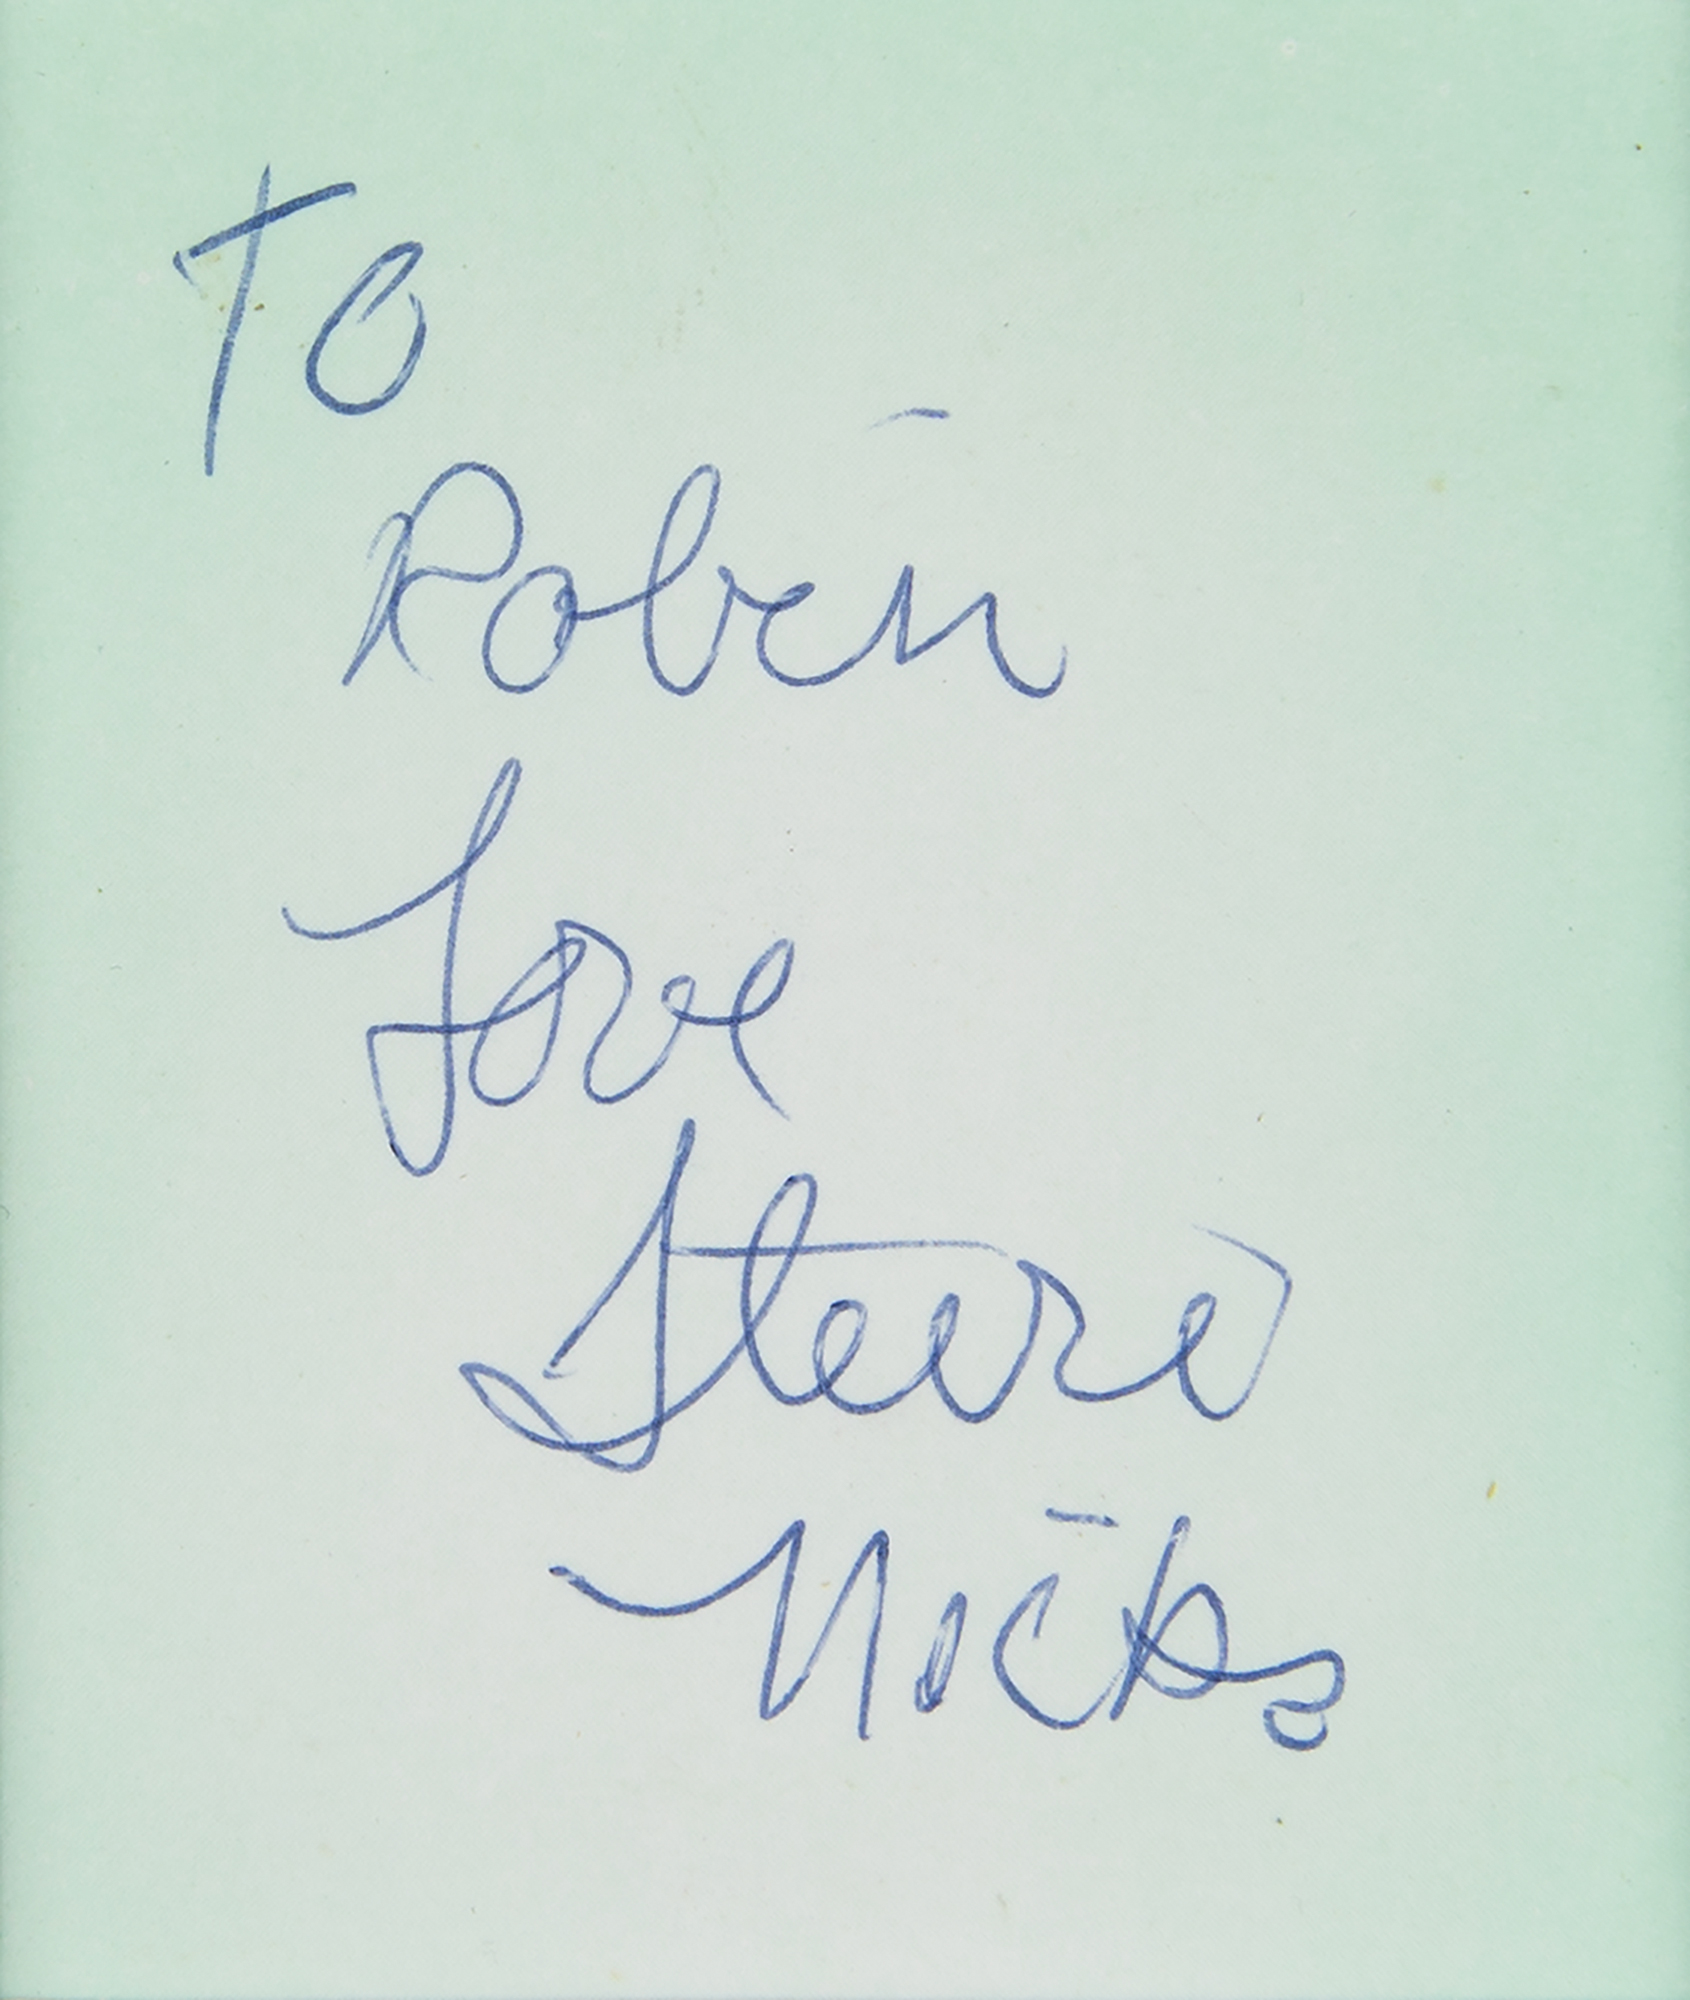 To
Robin
Love
Stevie
Nicks